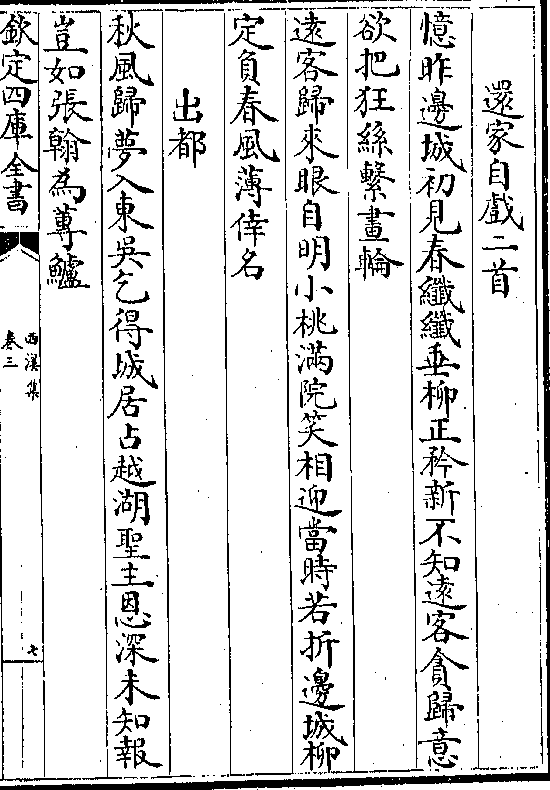 還家自戲二首
憶昨邊城初見春纖纖垂柳正矜新不知遠客貪歸意
欲把狂絲繫畫輪
遠客歸來眼自明小桃滿院笑相迎當時若折邊城柳
定負春風薄倖名
出都
秋風歸夢入東吳乞得城居占越湖聖主恩深未知報
豈如張翰為蓴鱸
欽定四庫全書
西溪集
卷三
七